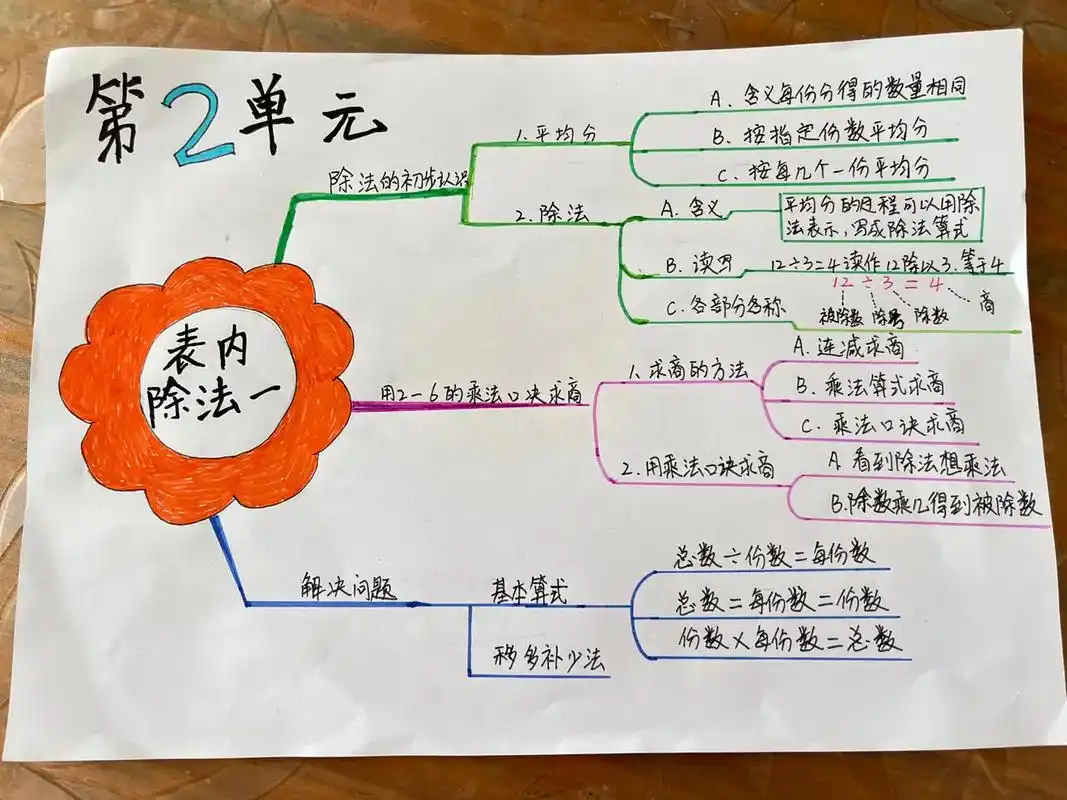 第2单元
表内
除法一
除法的初步认识
1.平均分
A.含义每份分得的数量相同
B.按指定份数平均分
C.按每几个一份平均分
2.除法
A.含义
平均分的过程可以用除
法表示,写成除法算式
B.读写
12÷3=4读作12除以3.等于4
C.各部分名称
12÷3=4
被除数 除号 除数 商
用2-6的乘法口决求商
1.求商的方法
A.连减求商
B.乘法算式求商
C.乘法口诀求商
2.用乘法口诀求商
A.看到除法想乘法
B.除数乘几得到被除数
解决问题
基本算式
总数÷份数=每份数
总数=每份数=份数
份数×每份数=总数
移多补少法